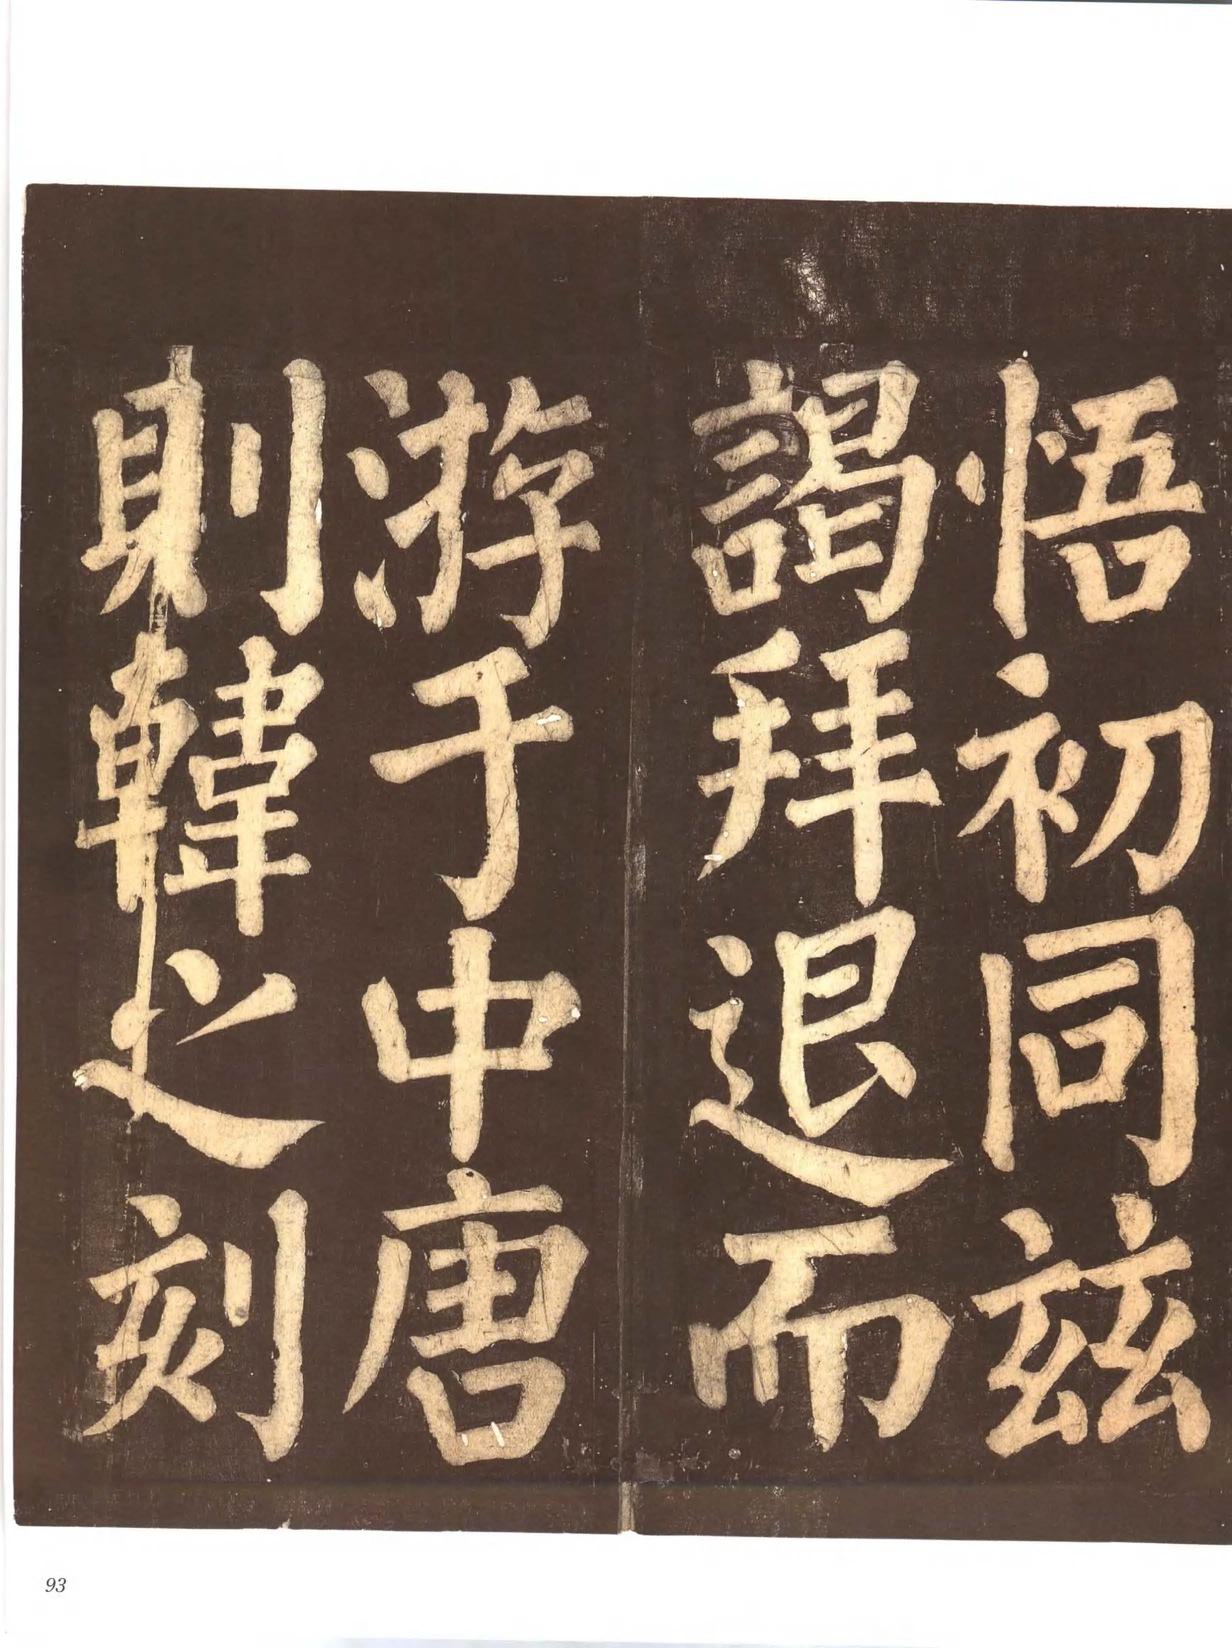 悟初同茲
謁拜退而
游于中唐
則韓之刻
93